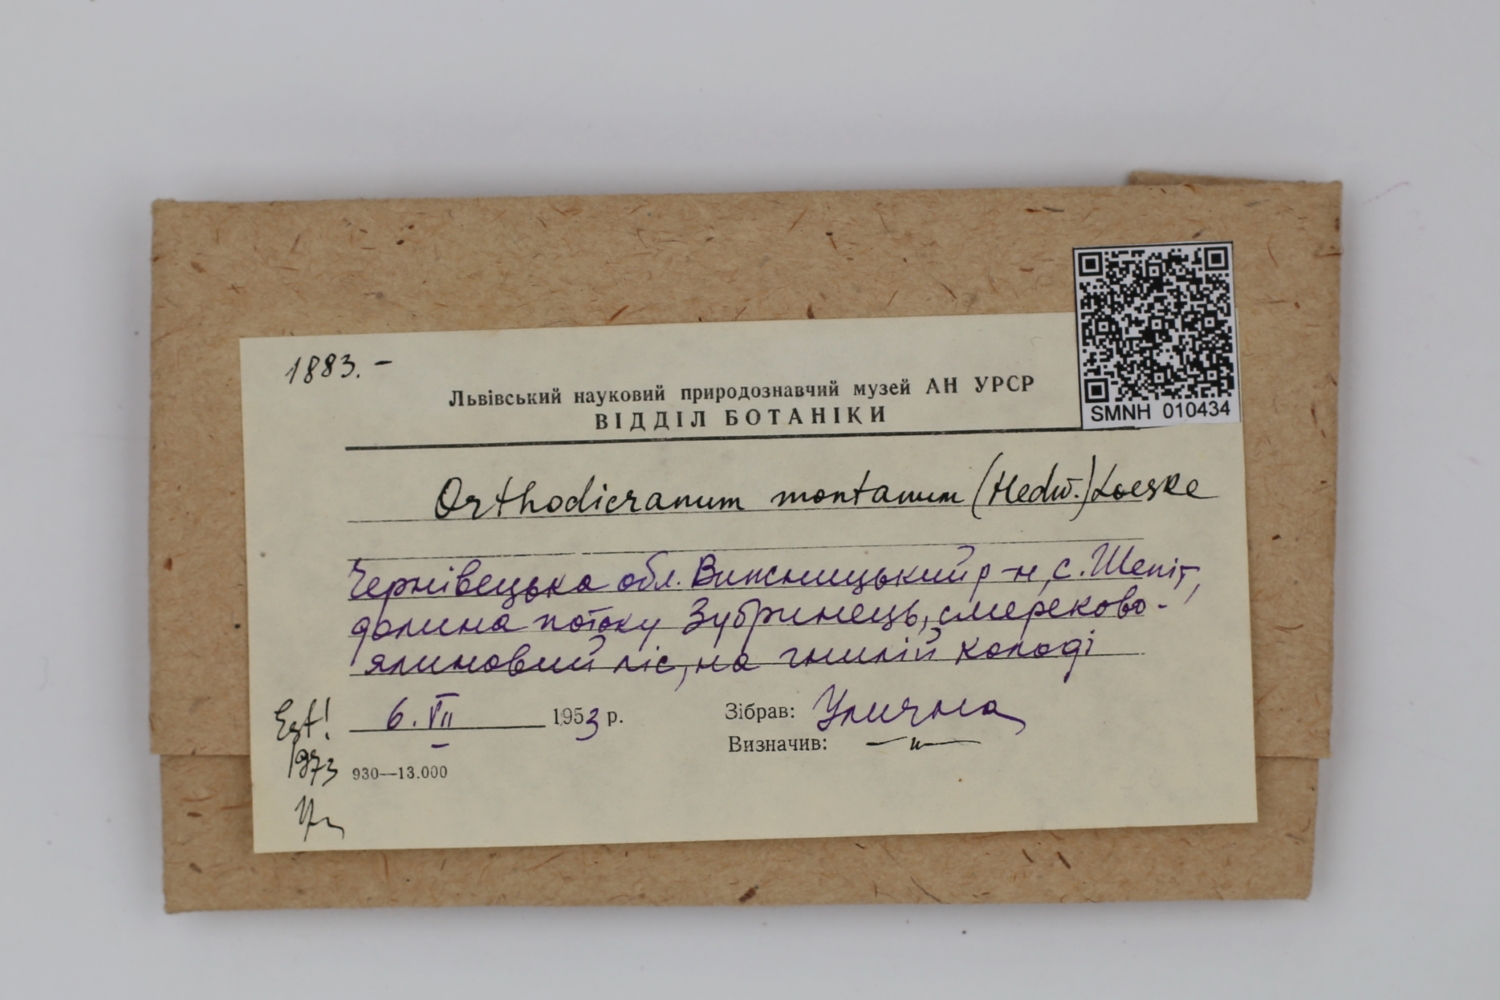 1883.-
Львівський науковий природознавчий музей АН УРСР
ВІДДІЛ БОТАНІКИ
SMNH 010434
Orthodicranum montanum (Hedw.) Loeske
Чернівецька обл. Вижницький р-н, с. Шепіт,
долина потоку Зубринець, смереково-
ялиновий ліс, на гнилій колоді
6.VII 1953 р.
Зібрав: Улична
Визначив: —"—
Est!
1973
930—13.000